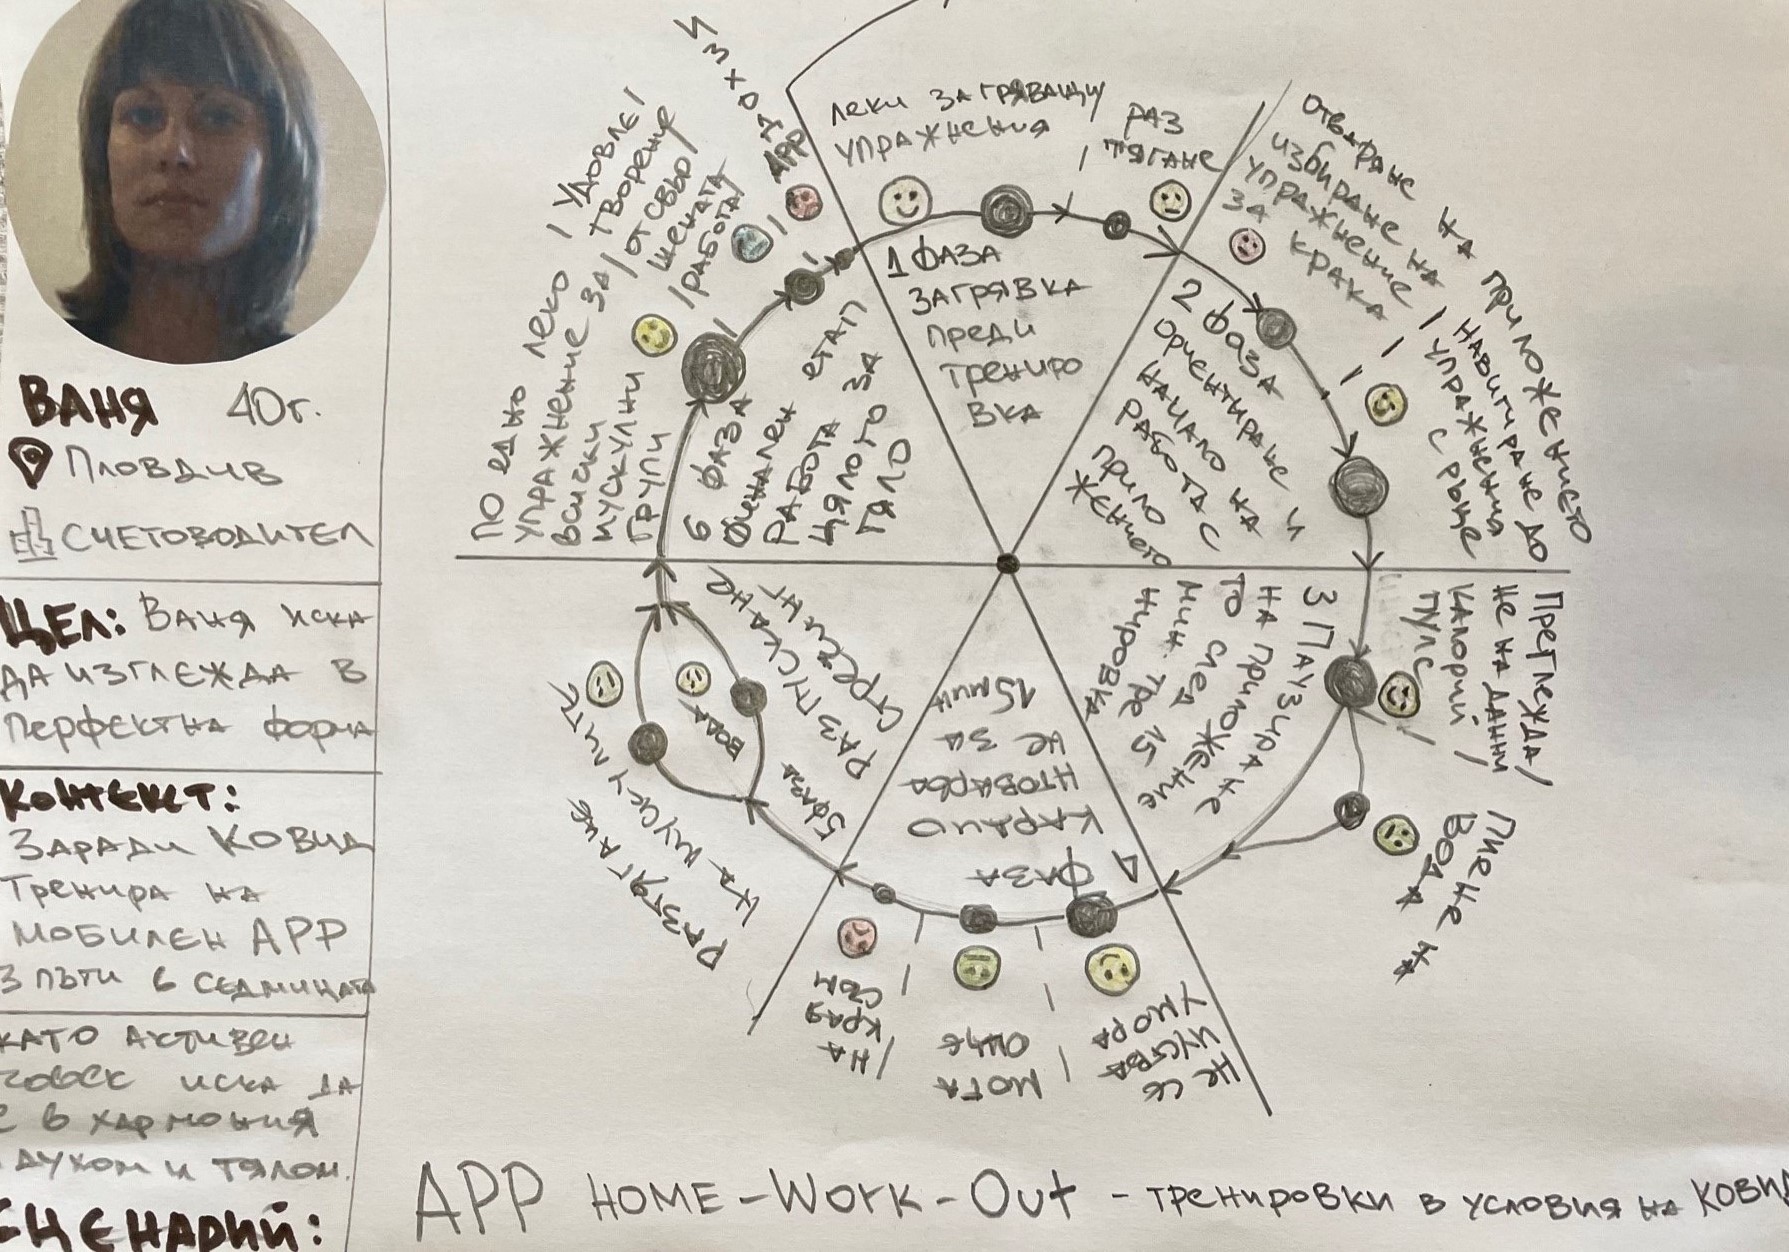 ВАНЯ 40г.
ПЛОВДИВ
СЧЕТОВОДИТЕЛ
ЦЕЛ: ВАНЯ ИСКА
ДА ИЗГЛЕЖДА В
ПЕРФЕКТНА ФОРМА
КОНТЕКСТ:
ЗАРАДИ КОВИД
ТРЕНИРА НА
МОБИЛЕН APP
3 ПЪТИ В СЕДМИЦАТА
КАТО АКТИВЕН
ЧОВЕК ИСКА ДА
Е В ХАРМОНИЯ
ДУХОМ И ТЯЛОМ.
СЦЕНАРИЙ:
ЛЕКИ ЗАГРЯВАЩИ /
УПРАЖНЕНИЯ
РАЗ
ТЯГАНЕ
1 ФАЗА
ЗАГРЯВКА
ПРЕДИ
ТРЕНИРО
ВКА
ОТВАРЯНЕ НА ПРИЛОЖЕНИЕТО
ИЗБИРАНЕ НА
УПРАЖНЕНИЕ
ЗА КРАКА
/ НАВИГИРАНЕ ДО
/ УПРАЖНЕНИЯ
С РЪЦЕ
2 ФАЗА
ОРИЕНТИРАНЕ И
НАЧАЛО НА
РАБОТА С
ПРИЛО
ЖЕНИЕТО
ПРЕГЛЕЖДА/
НЕ НА ДАННИ
КАЛОРИИ /
ПУЛС /
ПИЕНЕ НА
ВОДА
3 ПАУЗИРАНЕ
НА ПРИЛОЖЕНИЕ
ТО СЛЕД 15
МИН. ТРЕ
НИРОВКА
4
ФАЗА
КАРДИО
НТОВАРВА
НЕ ЗА
15 МИН
НЕ СЕ
ЧУСТВА
УМОРА
МОГА
ОЩЕ
/ НА
КРАЯ
СЪМ
5 ФАЗА
РАЗПУСКАНЕ
СТРЕЧИНГ
ВОДА
РАЗТЯГАНЕ
НА МУСКУЛИТЕ
6 ФАЗА
ФИНАЛЕН ЕТАП
РАБОТА ЗА
ЦЯЛОТО
ТЯЛО
ПО ЕДНО ЛЕКО
УПРАЖНЕНИЕ ЗА
ВСИЧКИ
МУСКУЛНИ
ГРУПИ
/ УДОВЛЕ/
ТВОРЕНИЕ
/ ОТ СВЪР/
ШЕНАТА
/ РАБОТА/
ИЗХОД
APP
APP HOME-WORK-OUT - ТРЕНИРОВКИ В УСЛОВИЯ НА КОВИД